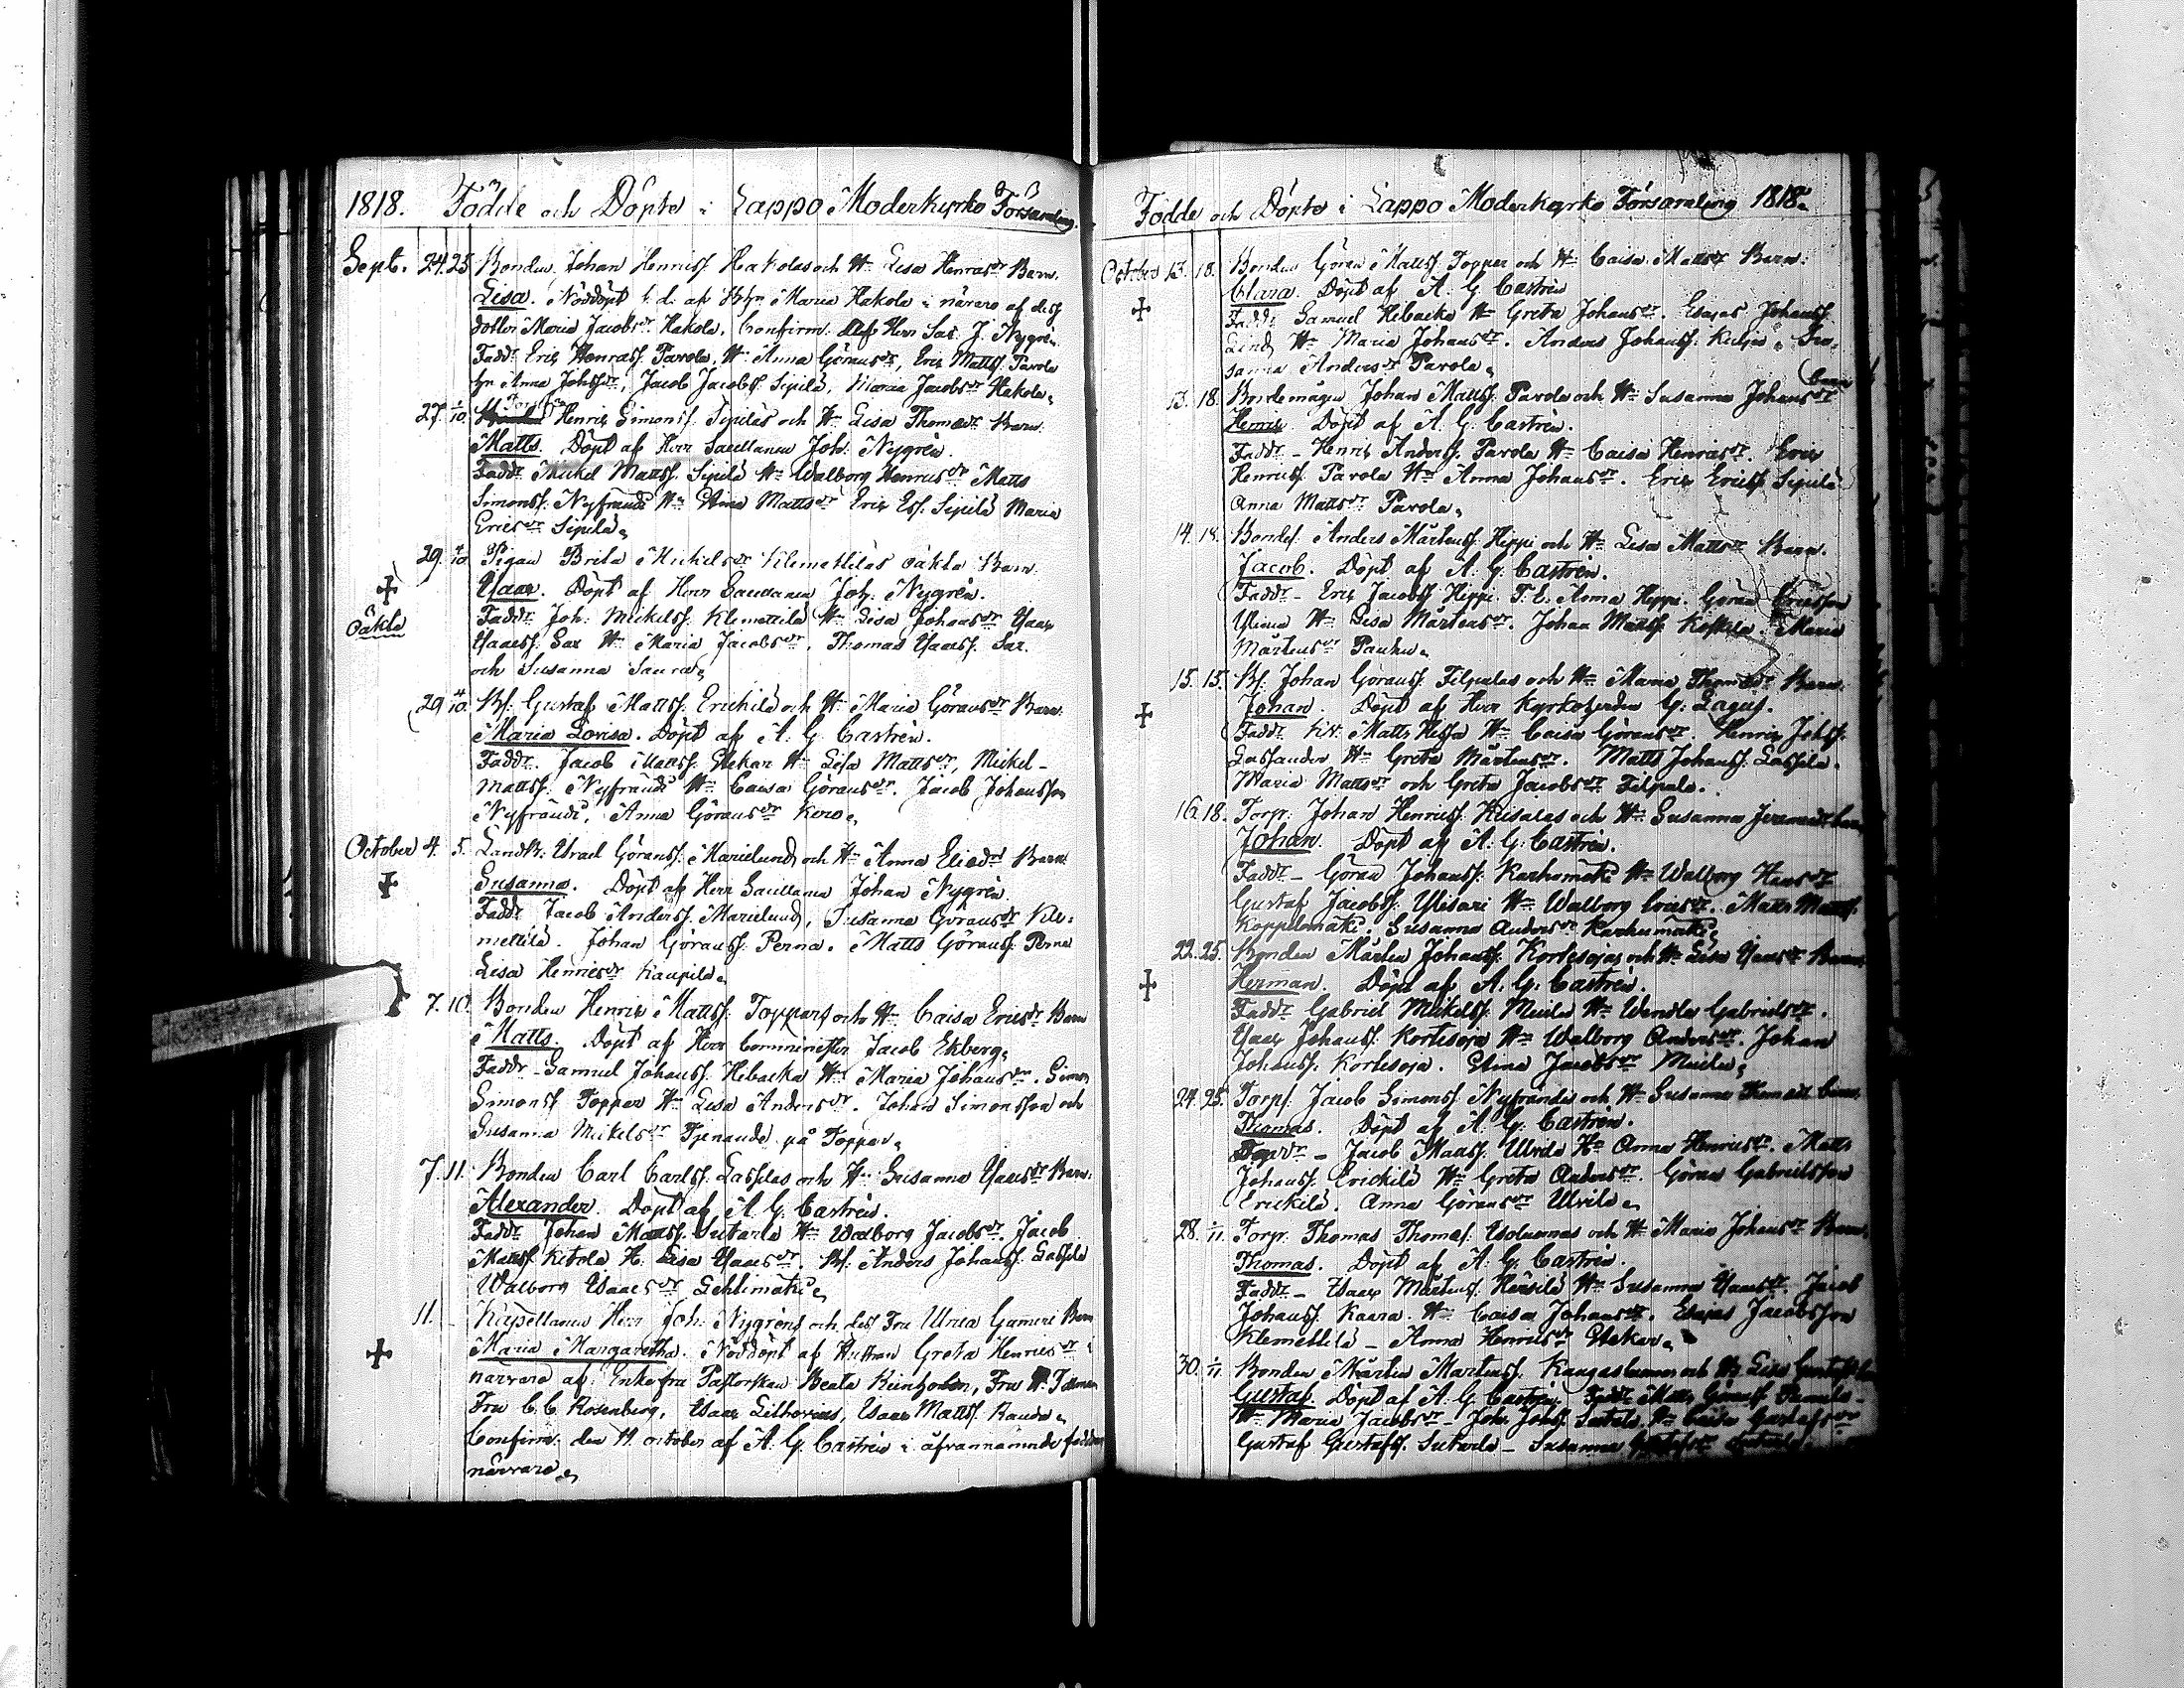 1818. Födde och Döpte i Lappo Moderkyrko Församling.
Sept. 24. 25 Bonden Johan Henriss. Hakolas och H:u Lisa Henrasdr Barn.
Lisa. Nöddöpt s. d. af Maria Hakola i närvaro af dess
dotter Maria Jacobsdr Hakola. Confirm. af Herr Sac. J. Nygrén
Faddr Eric Henrass. Pavola, H: Anna Göransdr, Eric Mattss. Pavola
Anna Johsdr, Jacob Jacobss. Sipilä, Maria Jacobsdr Hakola
27. 1/10 Henric Simonss. Sipilas och H:u Lisa Thomædr Barn.
Matts. Döpt af Herr Sacellanen Joh: Nygrén.
Faddr Mickel Mattss. Sipilä H:u Walborg Henricsdr Matts
Simonss. Nyfrände H:u Stina Mattsdr Eric Ess. Sipilä Maria
Ericsdr Sipilä
29. 4/10 Pigan Brita Mickelsdr Klemettiläs oäkta Barn.
Isaac. Döpt af Herr Sacellanen Joh: Nygrén.
oäkta Faddr Joh: Mickelss. Klemettilä H:u Lisa Johansdr Isaac
Isaacss. Sax H:u Maria Jacobsdr. Thomas Isaacss. Sax.
och Susanna
29 4/10 Bs. Gustaf Mattss. Erickilä och H:u Maria Göransdr Barn.
Maria Lovisa. Döpt af A. G. Castrén.
Faddr. Jacob Mattss. Stekar H:u Lisa Mattsdr, Mickel
Mattss. Nyfrände H:u Caisa Göransdr. Jacob Johansson
Nyfrände, Anna Göransdr Kero
October 4. 5. Landb. Israel Göranss. Marielund och H:u Anna Eliædr Barn.
Susanna. Döpt af Herr Sacellanen Johan Nygrén.
Faddr Jacob Anderss. Marielund, Susanna Göransdr Kle-
mettilä. Johan Göranss. Perna. Matts Göranss. Perna
Lisa Henricsdr Kaupila
7. 10. Bonden Henric Mattss. Toppars och H:u Caisa Ericsdr Barn
Matts. Döpt af Herr Comminister Jacob Ekberg
Faddr Samuel Johanss. Hebacka H:u Maria Johansdr. Simon
Simonss. Topper H:u Lisa Andersdr. Johan Simonsson och
Susanna Mickelsdr Tjenande på Topper
7. 11. Bonden Carl Carlss. Lassilas och H:u Susanna Isaacsdr Barn.
Alexander. Döpt af A. G. Castrén.
Faddr Johan Mattss. Sutarla H:u Walborg Jacobsdr. Jacob
Mattss. Ketola H: Lisa Isaacsdr. Bs. Anders Johanss. Lassila
Walborg Isaacsdr Lehtimäki
11. Kapellanen Herr Joh: Nygréns och dess Fru Ulrica Barn
Maria Margaretha. Nöddöpt af Greta Henricsdr i
närvaro af Enkefru Pastorskan Beata, Fru
Fru C. C. Rosenberg, Isaac Lithovius, Isaac Mattss. Kauda
Confirm. den 11 october af A. G. Castrén i åfvannämnde faddrars
närvaro
Födde och Döpte i Lappo Moderkyrko Församling 1818.
October 13. 18. Bonden Göran Mattss. Topper och H:u Caisa Mattsdr Barn.
Clara. Döpt af A. G. Castrén
Faddr Samuel Hebacka H:u Greta Johansdr. Esaias Johanss.
Lind H:u Maria Johansdr. Anders Johanss. Su-
sanna Andersdr Pavola
13. 18. Bondemågen Johan Mattss. Pavola och H:u Susanna Johansdr Barn
Henric. Döpt af A. G. Castrén.
Faddr - Henric Anderss. Pavola H:u Caisa Henricsdr. Eric
Henricss. Pavola H:u Anna Johansdr. Eric Ericss. Sipilä
Anna Mattsdr Pavola
14. 18. Bondes. Anders Mårtenss. Hippi och H:u Lisa Mattsdr Barn.
Jacob. Döpt af A. G. Castrén.
Faddr - Eric Jacobss. Hippi. Anna Hippi. Göran Ericsson
H:u Lisa Mårtensdr. Johan Mattss. Koskela. Maria
Mårtensdr
15. 15. Bs. Johan Göranss. Filpulas och H:u Maria Thomædr Barn.
Johan. Döpt af Herr Kyrkoherden G: Lagus.
Faddr Matts H:u Caisa Göransdr. Henric Johss.
H:u Greta Mårtensdr. Matts Johanss. Lassila.
Maria Mattsdr och Greta Jacobsdr Filpula.
16. 18. Torp: Johan Henricss. och H:u Susanna barn
Johan. Döpt af A. G. Castrén.
Faddr - Göran Johanss. Karhumäki H:u Walborg Hansdr
Gustaf Jacobss. Ylisari H:u Walborg Ericsdr. Matts Mattss.
Koppelomäki. Susanna Andersdr Karhumäki
22. 25. Bonden Mårten Johanss. Kortesojas och H:u Lisa Isaacsdr Barn.
Herman. Döpt af A. G. Castrén.
Faddr Gabriel Mickelss. H:u Wendla Gabrielsdr.
Isaac Johanss. Kortesoja H:u Walborg Andersdr. Johan
Johanss. Kortesoja. Stina Jacobsdr
24. 25. Torps. Jacob Simonss. Nyfrändes och H:u Susanna Thomædr Barn.
Thomas. Döpt af A. G. Castrén.
Faddr - Jacob Mattss. Ulvila H:u Anna Henricsdr. Matts
Johanss. Erickilä H:u Greta Andersdr. Göran Gabrielsson
Erickilä. Anna Göransdr Ulvila
28. 1/11 Torp: Thomas Thomæs. och H:u Maria Johansdr Barn.
Thomas. Döpt af A. G. Castrén.
Faddr - Isaac Mårtenss. H:u Susanna Isaacsdr. Jacob
Johanss. Kaara H:u Caisa Johansdr. Esaias Jacobsson
Klemettilä - Anna Henricsdr Stekar
30. 1/11 Bonden Mårten Mårtenss. och H:u Lisa
Gustaf. Döpt af A. G. Castrén. Faddr Matts Göranss.
H:u Maria Jacobsdr - Joh: Johss. Sutarla H:u Caisa Gustafsdr
Gustaf Gustafss. Sutarla - Susanna